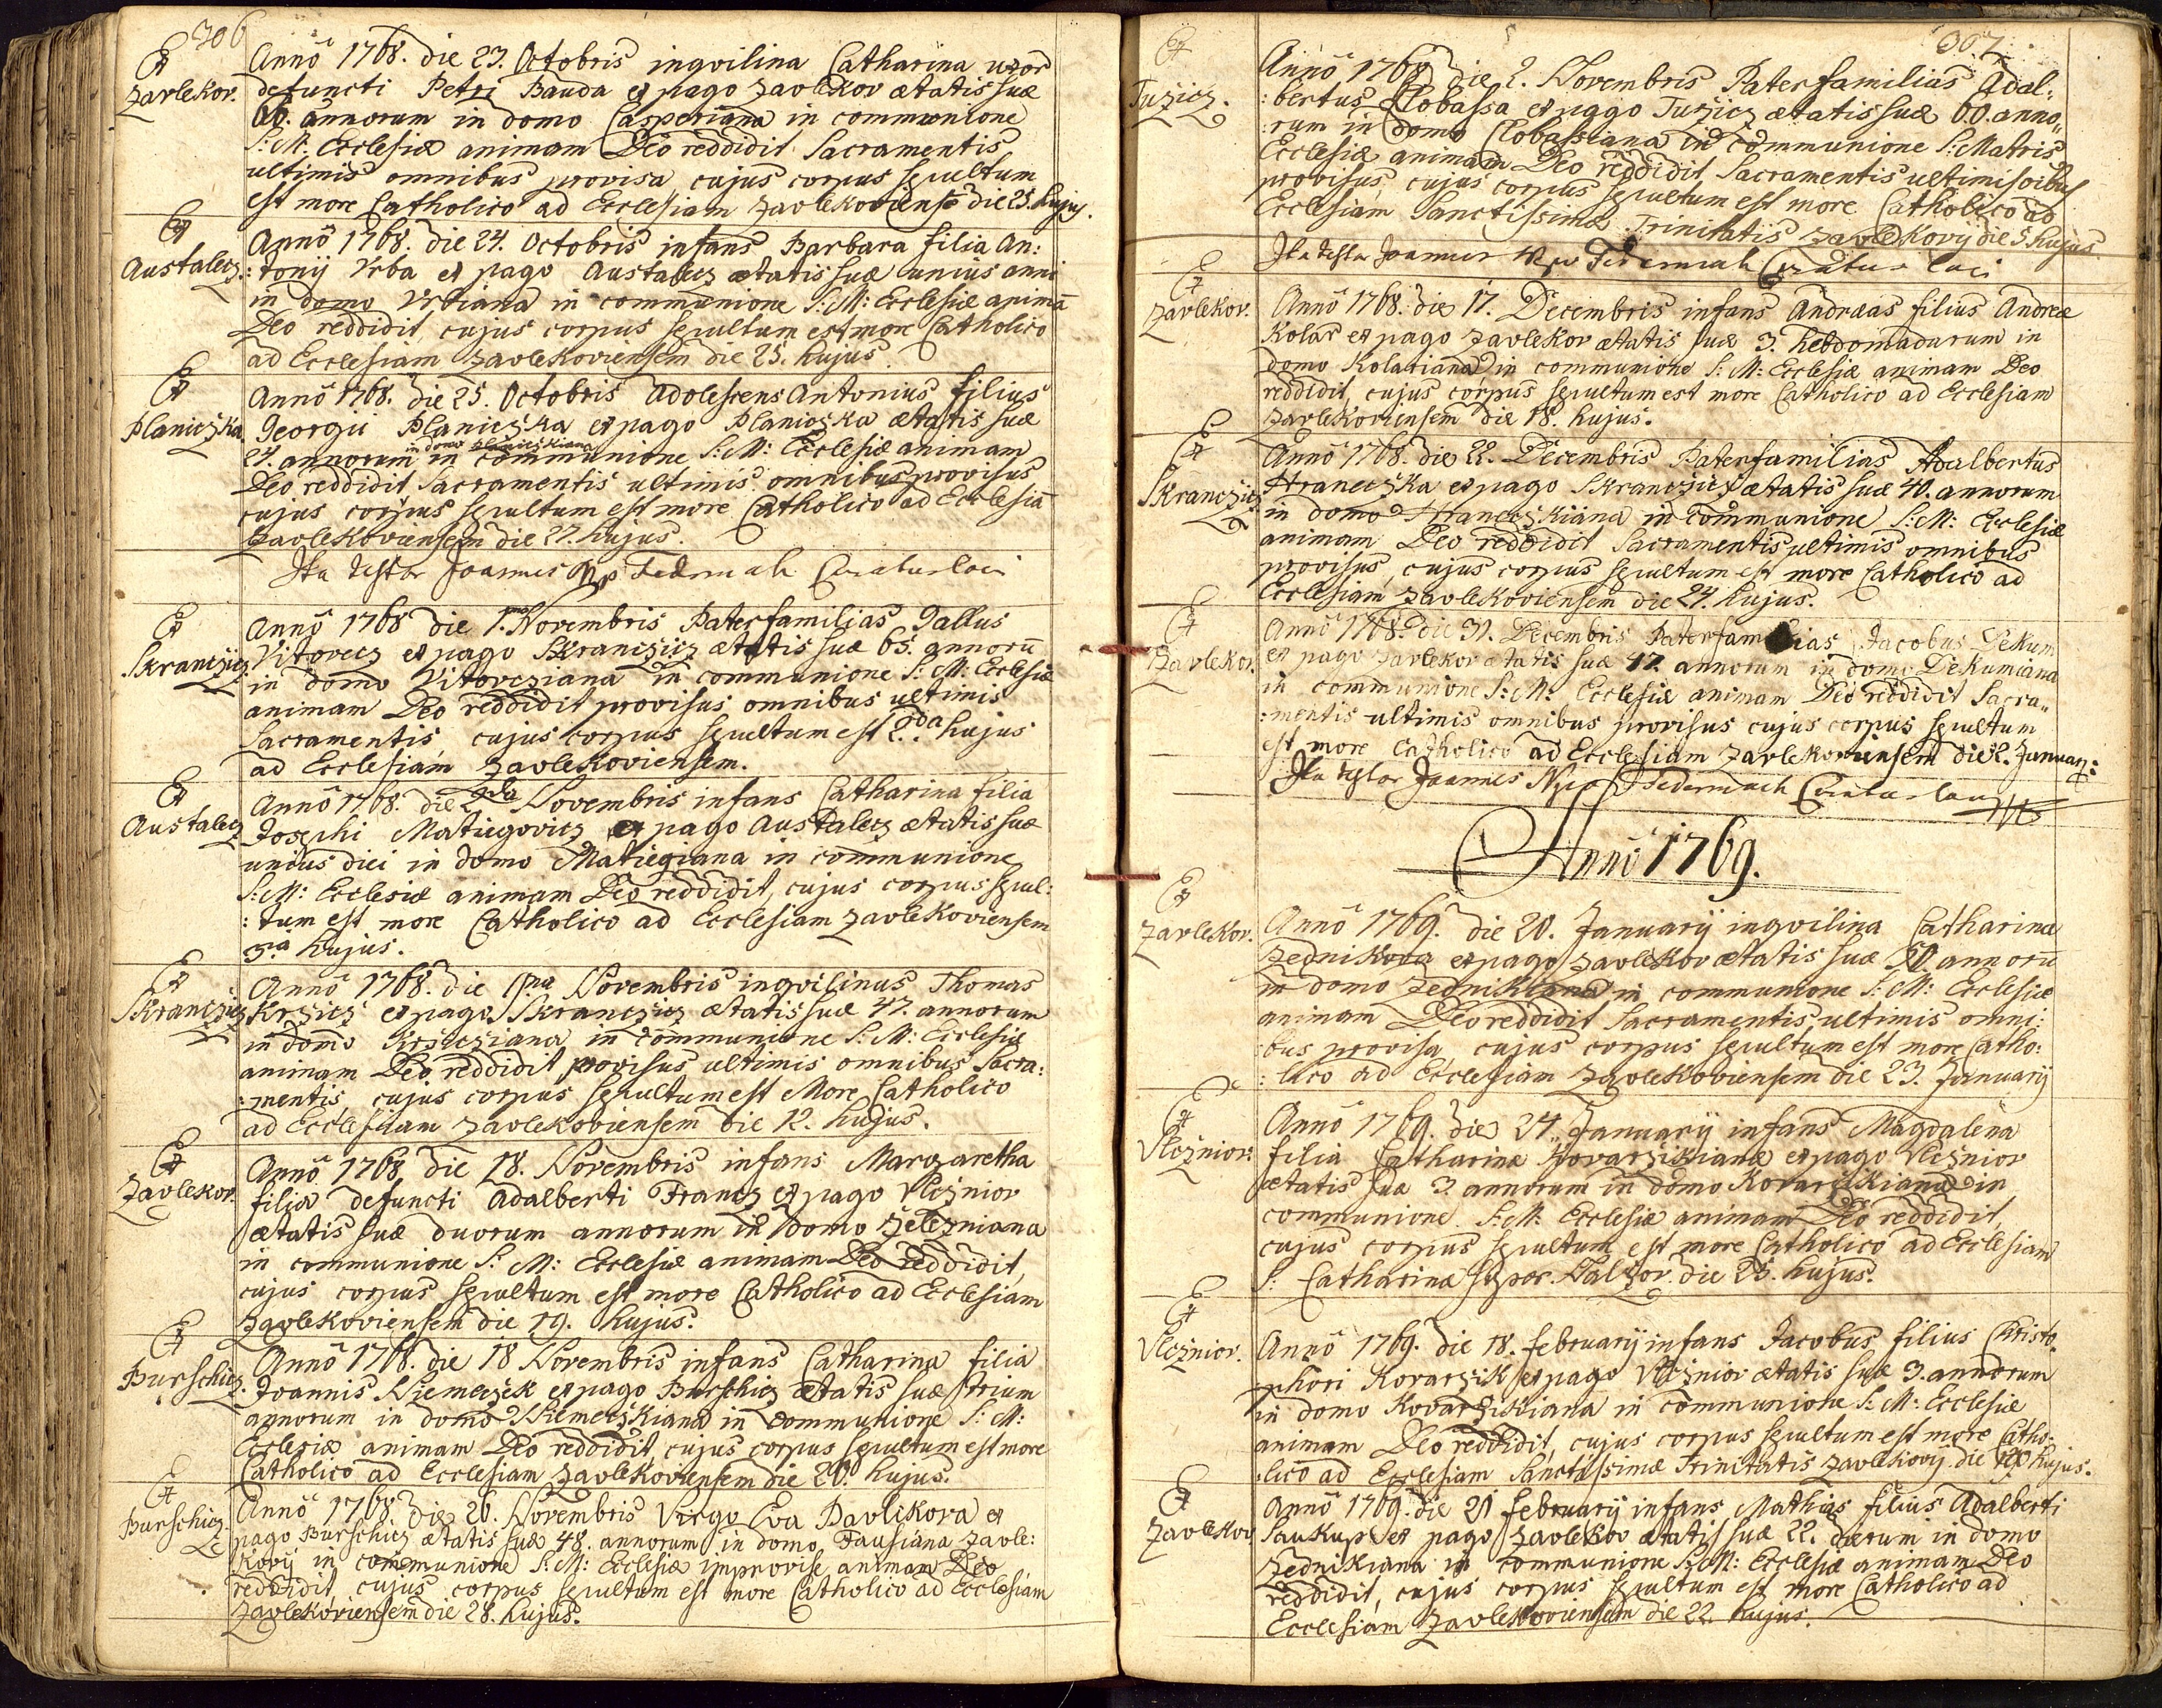 306
Zavlekov.
Anno 1768. die 23. Octobris inqvilina Catharina uxor
defuncti Petri Bauda ex pago Zavlekov ætatis suæ
annorum in domo Casperiana in communione
S: M: Ecclesiæ animam Deo reddidit Sacramentis
ultimis omnibus provisa, cujus corpus sepultum
est more Catholico ad Ecclesiam Zavlekoviensē die 25. hujus.
Austalecz.
Anno 1768. die 24. Octobris infans Barbara filia An:
:tonij Vrba ex pago Austalecz ætatis suæ unius anni
in domo Vrbiana in communione S: M: Ecclesiæ animā
Deo reddidit, cujus corpus sepultum est more Catholico
ad Ecclesiam Zavlekoviensem die 25. hujus.
Planiczka.
Anno 1768. die 25. Octobris Adolescens Antonius filius
Georgii Planiczka ex pago Planiczka ætatis suæ
in domo Planiczkiana
24. annorum in communione S: M: Ecclesiæ animam
Deo reddidit Sacramentis ultimis omnibus provisus
cujus corpus sepultum est more Catholico ad Ecclesiā
Zavlekoviensem die 27. hujus.
Ita testor Joannes Federmach Curatus loci
Skranczicz
Anno 1768 die 1.ma Novembris Paterfamilias Gallus
Vitovecz ex pago Skranczicz ætatis suæ 65. annorū
in domo Vitovcziana in communione S: M: Ecclesiæ
animam Deo reddidit provisus omnibus ultimis
Sacramentis, cujus corpus sepultum est 2.da hujus
ad Ecclesiam Zavlekoviensem.
Austalecz
Anno 1768. die 2da Novembris infans Catharina filia
Josephi Matiegovicz ex pago Austalecz ætatis suæ
unius diei in domo Matiegiana in communione
S: M: Ecclesiæ animam Deo reddidit, cujus corpus sepul:
:tum est more Catholico ad Ecclesiam Zavlekoviensem
3.a hujus.
Skranczicz
Anno 1768. die Novembris inqvilinus Thomas
Krzicz ex pago Skranczicz ætatis suæ 47. annorum
in domo Krzicziana in communione S: M: Ecclesiæ
animam Deo reddidit, provisus ultimis omnibus Sacra:
:mentis, cujus corpus sepultum est More Catholico
ad Ecclesiam Zavlekoviensem die 12. hujus.
Zavlekov.
Anno 1768 die 18. Novembris infans Margaretha
filia defuncti Adalberti Francz ex pago Vlczniov
ætatis suæ duorum annorum in domo Zelezniana
in communione S: M: Ecclesiæ animam Deo reddidit,
cujus corpus sepultum est more Catholico ad Ecclesiam
Zavlekoviensem die 19. hujus.
Burschicz.
Anno 1768. die 18 Novembris infans Catharina filia
Joannis Niemeczek ex pago Burschicz ætatis suæ trium
annorum in domo Niemeczkiana in communione S: M:
Ecclesiæ animam Deo reddidit, cujus corpus sepultum est more
Catholico ad Ecclesiam Zavlekoviensem die 20. hujus.
Burschicz.
Anno 1768. die 26. Novembris Virgo Eva Pavlikova ex
pago Burschicz ætatis suæ 48. annorum in domo Fausiana Zavle:
kovij in communione S: M: Ecclesiæ improvise animam Deo
reddidit, cujus corpus sepultum est more Catholico ad Ecclesiam
Zavlekoviensem die 28. hujus.
307.
Tuzicz.
Anno 1768 die 2. Novembris Paterfamilias Adal:
:bertus Clobassa ex pago Tuzicz ætatis suæ 60. anno„
:rum in domo Clobassiana in communione S: Matris
Ecclesiæ animam Deo reddidit, Sacramentis ultimis oībus
provisus, cujus corpus sepultum est more Catholico ad
Ecclesiam Sanctissimæ Trinitatis Zavlekovij die 5 hujus.
Ita testor Joannes Federmach Curatus loci
Zavlekov.
Anno 1768. die 17. Decembris infans Andræas filius Andreæ
Kolar ex pago Zavlekov ætatis suæ 3. hebdomadarum in
domo Kolariana in communione S: M: Ecclesiæ animam Deo
reddidit, cujus corpus sepultum est more Catholico ad Ecclesiam
Zavlekoviensem die 18. hujus.
Skranczicz
Anno 1768. die 22. Decembris Paterfamilias Adalbertus
Straneczka ex pago Skranczicz ætatis suæ 40. annorum
in domo Straneczkiana in communione S: M: Ecclesiæ
animam Deo reddidit Sacramentis ultimis omnibus
provisus, cujus corpus sepultum est more Catholico ad
Ecclesiam Zavlekoviensem die 24. hujus.
Zavlekov.
Anno 1768. die 31. Decembris Paterfamilias Jacobus Dekum
ex pago Zavlekov ætatis suæ 47. annorum in domo Dekumiana
in communione S: M: Ecclesiæ animam Deo reddidit Sacra„
:mentis ultimis omnibus provisus cujus corpus sepultum
est more Catholico ad Ecclesiam Zavlekoviensem die 2. Januarij:
Ita testor Joannes Federmach Curatus loci
Anno 1769.
Zavlekov.
Anno 1769. die 20. Januarij inqvilina Catharina
Zednikova ex pago Zavlekov ætatis suæ 50 annorū
in domo Zednikiana in communione S: M: Ecclesiæ
animam Deo reddidit Sacramentis ultimis omni:
:bus provisa, cujus corpus sepultum est more Catho:
:lico ad Ecclesiam Zavlekoviensem die 23. Januarij
Vlcznior.
Anno 1769. die 24. Januarij infans Magdalena
filia Catharinæ Kovarzikianæ ex pago Vlcznior
ætatis suæ 3 annorum in domo Kovarzikiana in
communione S: M: Ecclesiæ animam Deo reddidit,
cujus corpus sepultum est more Catholico ad Ecclesiam
S: Catharinæ die 25. hujus.
Vlcznior.
Anno 1769. die 18. februarij infans Jacobus filius Christo„
:phori Kovarzik ex pago Vlcznior ætatis suæ 3. annorum
in domo Kovarzikiana in communione S: M: Ecclesiæ
animam Deo reddidit, cujus corpus sepultum est more Catho:
:lico ad Ecclesiam Sanctissimæ Trinitatis Zavlekovij die hujus.
Zavlekov
Anno 1769. die 21 februarij infans Mathias filius Adalberti
Saukup ex pago Zavlekov ætatis suæ 22. dierum in domo
Zednikiana in communione S: M: Ecclesiæ animam Deo
reddidit, cujus corpus sepultum est more Catholico ad
Ecclesiam Zavlekoviensem die 22. hujus.